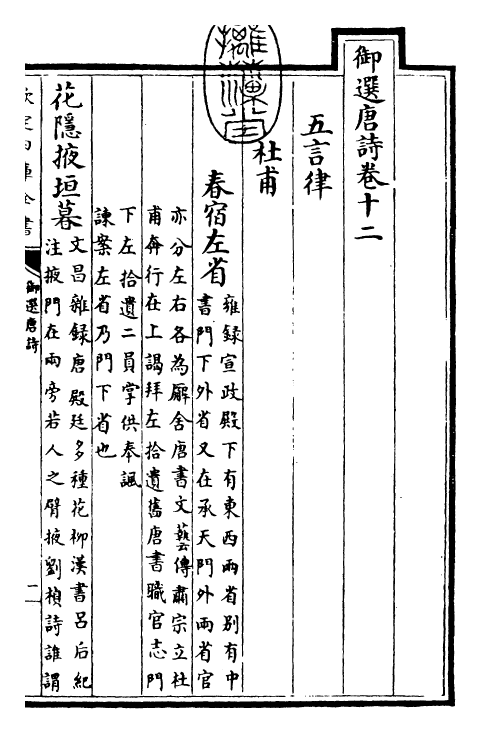 御選唐詩卷十二
五言律
杜甫
春宿左省
雍録宣政殿下有東西兩省别有中
書門下外省又在承天門外兩省官
亦分左右各為廨舍唐書文藝傳肅宗立杜
甫奔行在上謁拜左拾遺舊唐書職官志門
下左拾遺二員掌供奉諷
諫案左省乃門下省也
花隱掖垣暮
文昌雜録唐殿廷多種花柳漢書呂后紀
注掖門在兩旁若人之臂掖劉楨詩誰謂
欽定四庫全書
御選唐詩
一